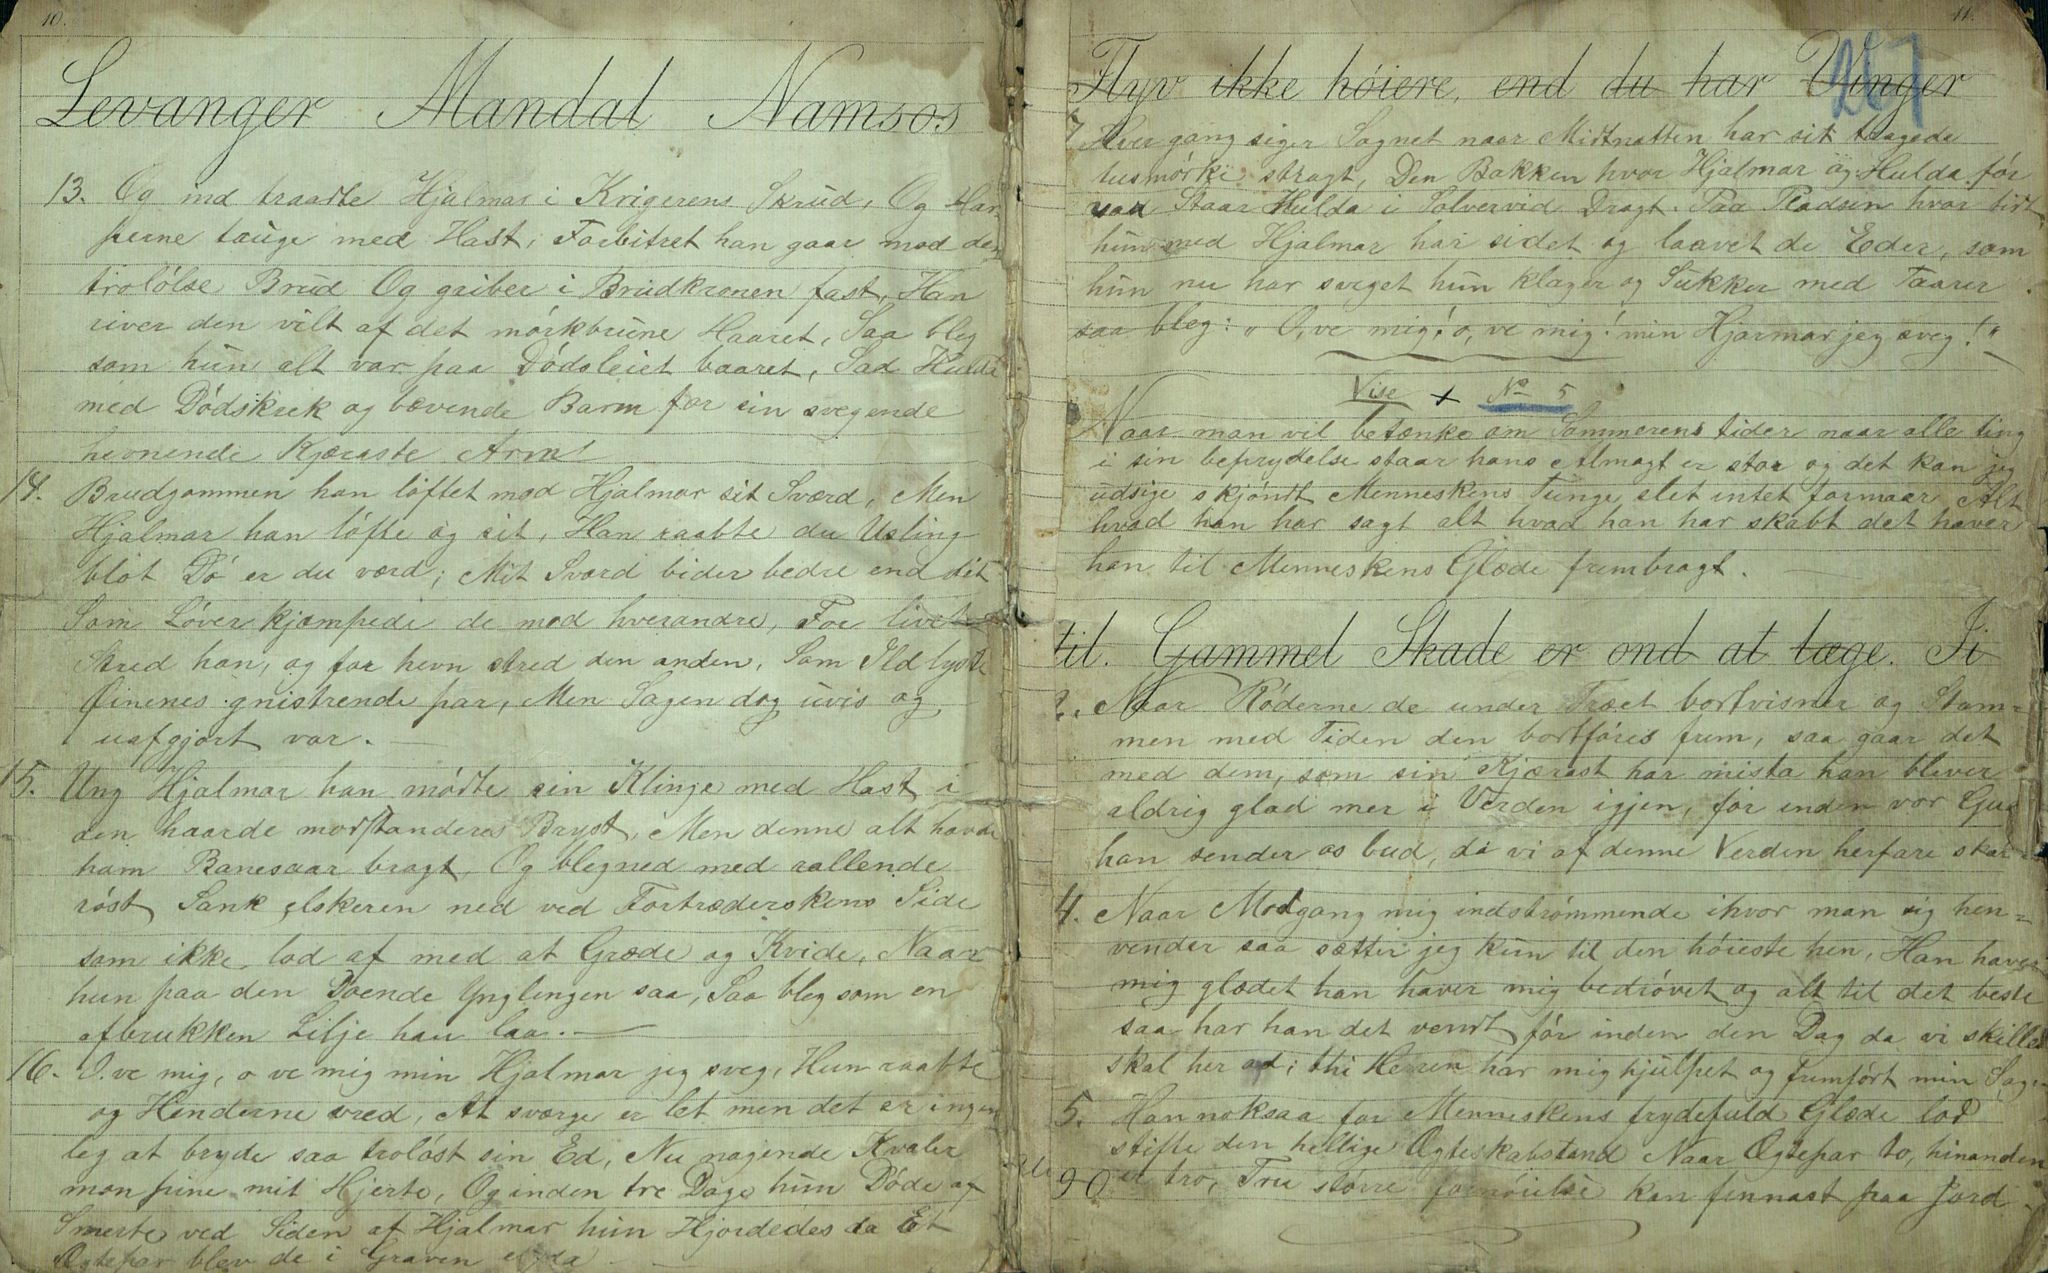 10.
Levanger Mandal Namsos
13. Og ind traadte Hjalmar i Krigerens Skrud, Og Har-
perne tauge med Hast, Forbitret han gaar mod den
trolólse Brud Og griber i Brudkronen fast, Han
river den vilt af det mórkbrune Haaret, Saa bleg
som hun alt var paa Dódsleiet baaret, Sad Hulda
med Dódskrek og bævende Barm for sin svegende
hevnende Kjæraste Arm!
14. Brudgommen han lóftet mod Hjalmar sit Sværd, Men
Hjalmar han lófte og sit, Han raabte du Usling
blot Dó er du værd; Mit Sværd bider bedre end dit
Som Lóver kjæmpede de mod hverandre, For livet
Stred han, og for hevn stred den anden, Som Ild lyste
Óinenes gnistrende par, Men Sagen dog uvis og
uafgjort var.
15. Ung Hjalmar han módte sin Klinge med Hast i
den haarde modstanderes Bryst, Men denne alt havde
ham Banesaar bragt, Og blegned med rallende
róst Sank elskeren ned ved Fortræderskens Side
som ikke lod af med at Græde og Kvide, Naar
hun paa den Doende Ynglingen saa, Saa bleg som en
afbrukken Lilje han laa.
16. O, ve mig, o ve mig min Hjalmar jeg sveg, Hun raabte
og Henderne vred, At sværge er let men det er ingen
leg at bryde saa trolóst sin Ed, Nu nagende Kvaler
mon pine mit Hjerte, Og inden tre Dage hun Dóde af
Smerte ved Siden af Hjalmar hun Hjordedes da Et
Ægtepar blev de i Graven enda
11.
267
Flyv ikke hóiere, end du har Vinger
7. Hver gang siger Sagnet naar Midtnatten har sit taagede
tusmórke stragt, Den Bakken hvor Hjalmar og Hulda fór
Staar Hulda i Sólvervid Dragt. Paa Pladsen hvor tidt
hun med Hjalmar har sidet og laavet de Eder, som
hun nu har sveget hun klager og Sukker med Taarer
saa bleg: "O, ve mig! o, ve mig! min Hjarmar jeg sveg!"
Vise + No 5
Naar man vil betænke om Sommerens tider naar alle ting
i sin beprydelse staar hans Almagt er stor og det kan jeg
udsige skjóndt Menneskens Tunge slet intet formaar Alt
hvad han har sagt alt hvad han har skabt det haver
han til Menneskens Glæde frembragt.
til. Gammel Skade er ond at læge. Ti
2. Naar Róderne de under Træet bortvisner og Stam-
men med Tiden den bortfóres frem, saa gaar det
med dem, som sin Kjærast har mista han bliver
aldrig glad mer i Verden igjen, fór inden vor Gud
han sender os bud, da vi af denne Verden herfare skar
4. Naar Modgang mig indstrómmende ihvor man sig hen-
vender saa sætter jeg kun til den hóieste hen, Han haver
mig glædet han haver mig bedróvet og alt til det beste
saa har han det vendt fór inden den Dag da vi skilles
skal her ad; thi Herren har mig hjulpet og fremfórt min Sag-
5. Han noksaa for Menneskens frydefuld Glæde lod
stifte den hellige Ægteskabstand Naar Ægtepar to, hinanden
er tro, Tru stórre fornóielse kan finnast paa Jord
90